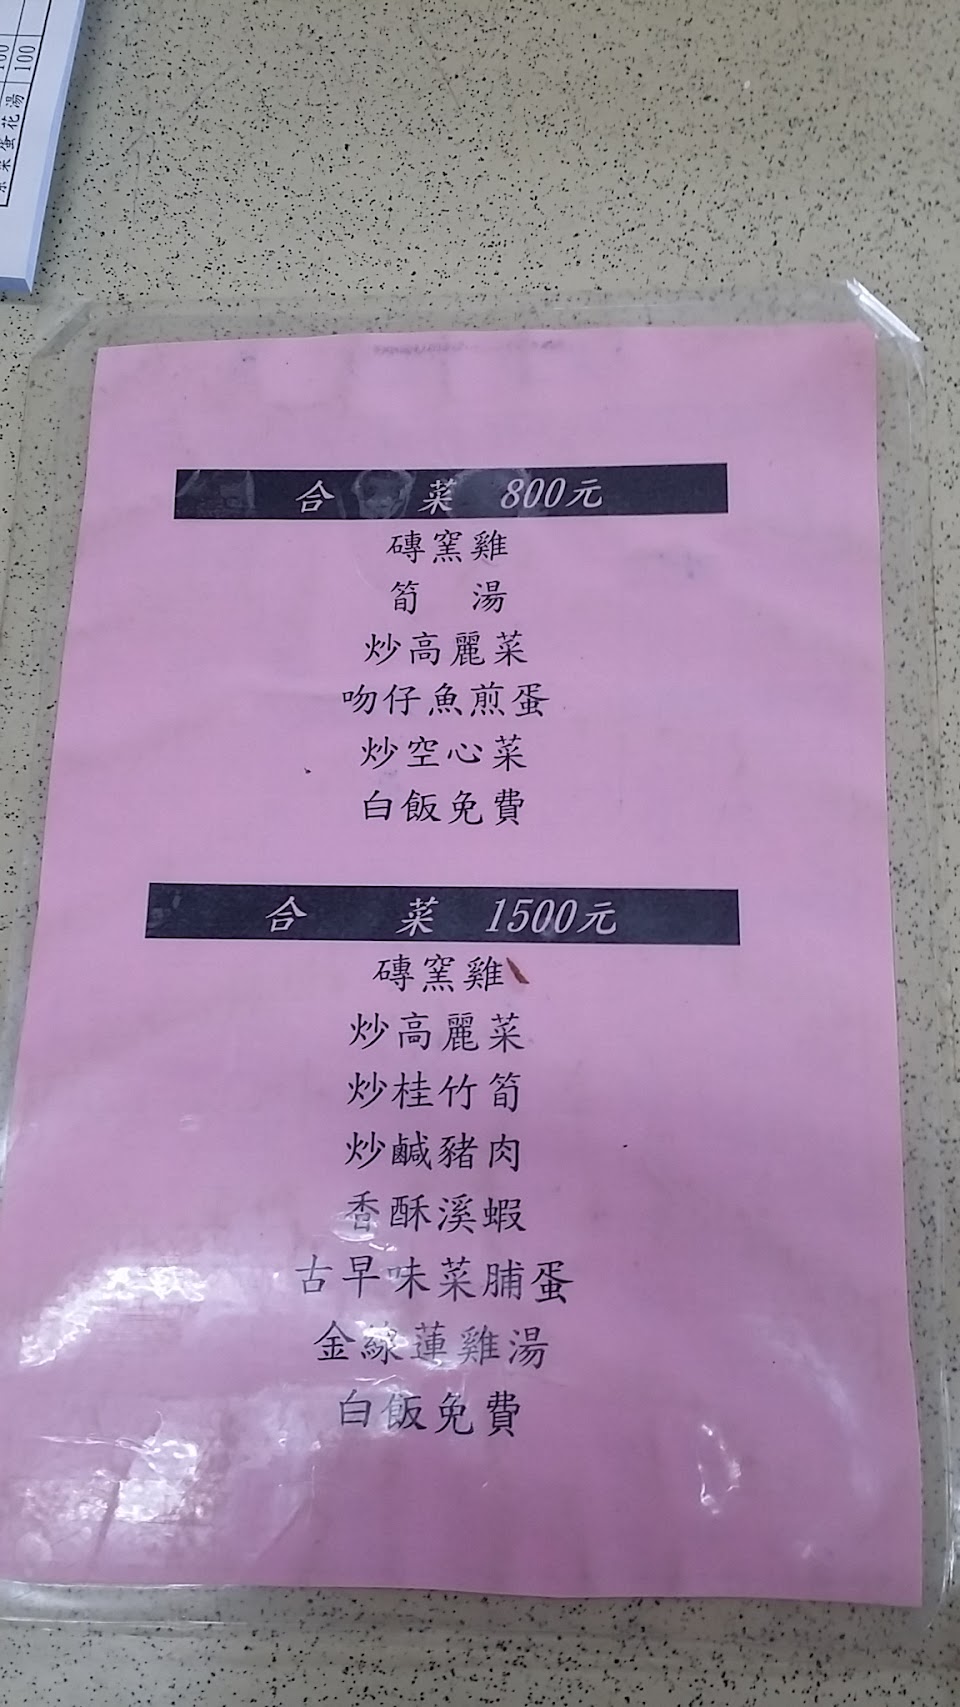 100
100
菜蛋花湯
合 菜 800元
磚窯雞
筍 湯
炒高麗菜
吻仔魚煎蛋
炒空心菜
白飯免費
合 菜 1500元
磚窯雞
炒高麗菜
炒桂竹筍
炒鹹豬肉
香酥溪蝦
古早味菜脯蛋
金線蓮雞湯
白飯免費